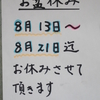 お盆休み
8月13日〜
8月21日迄
お休みさせて
頂きます